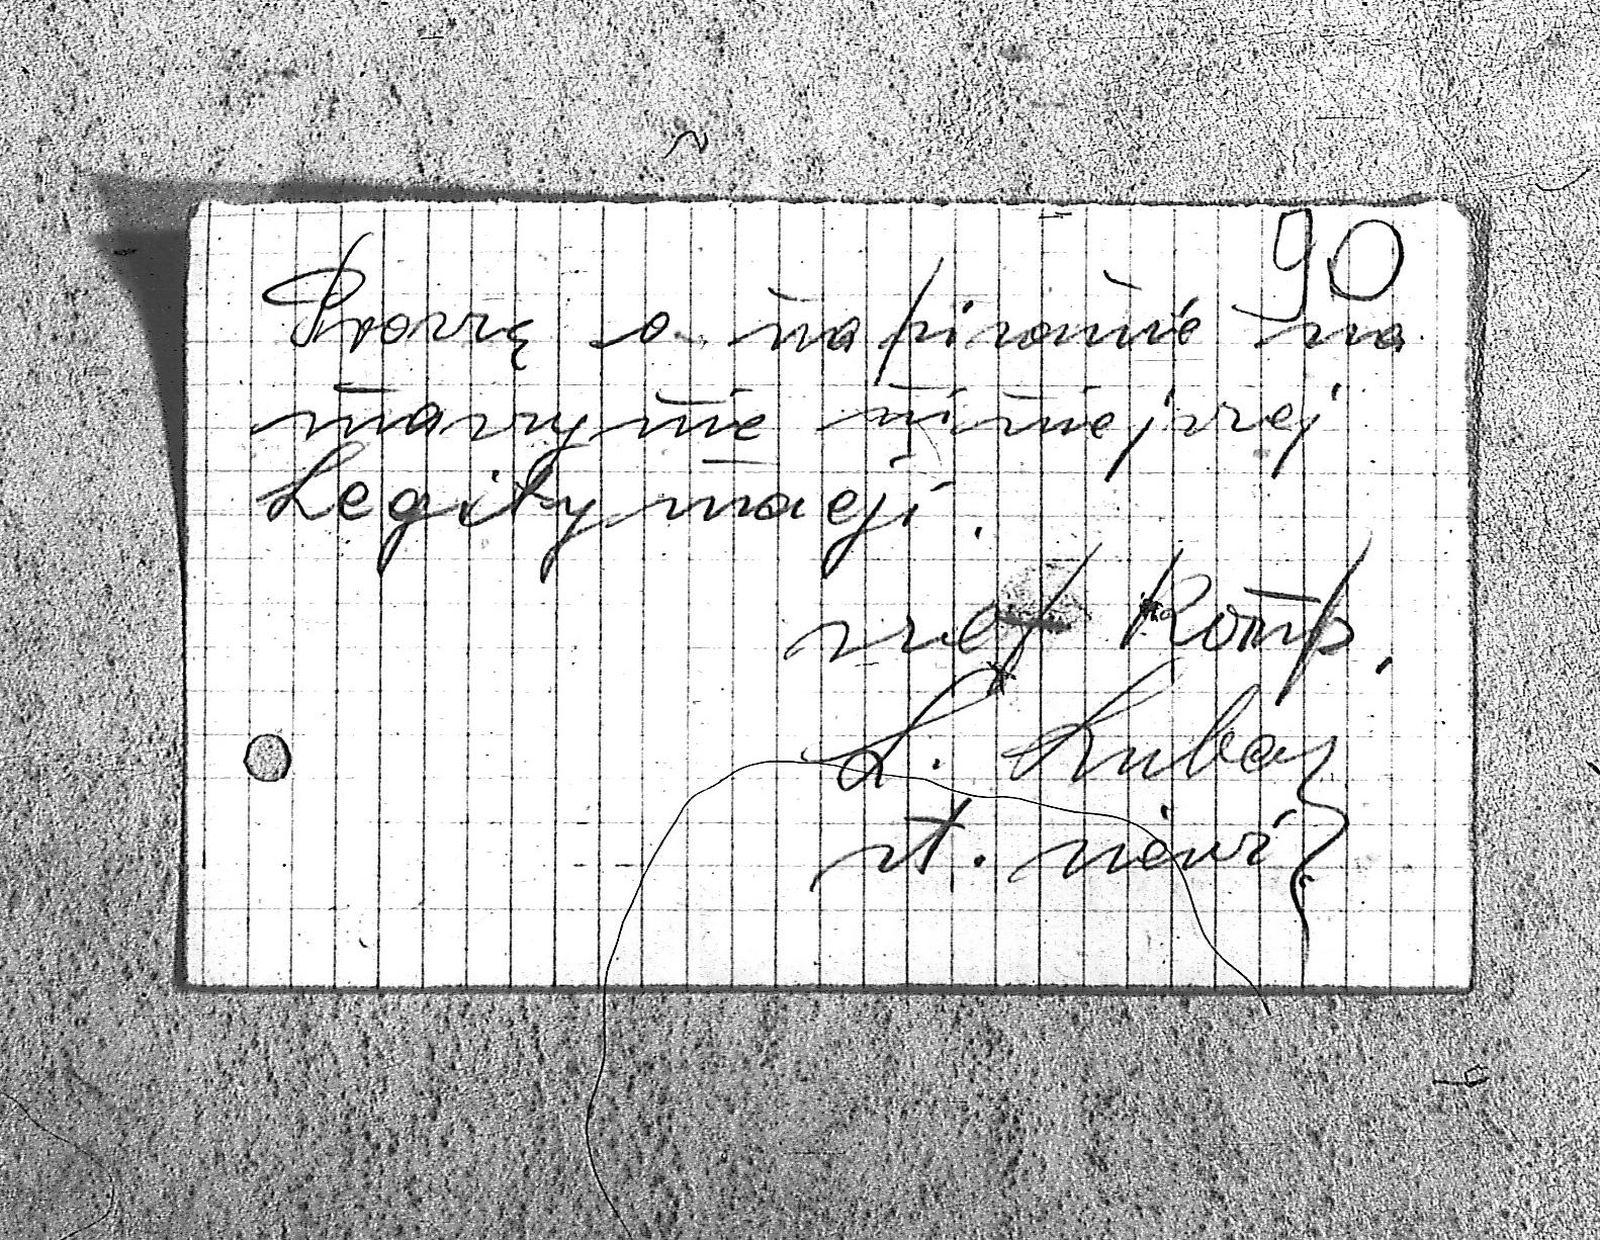 90
Proszę o napisanie na
maszynie niniejszej
Legitymacji.
szef Komp.
L. Lubas
st. sierż